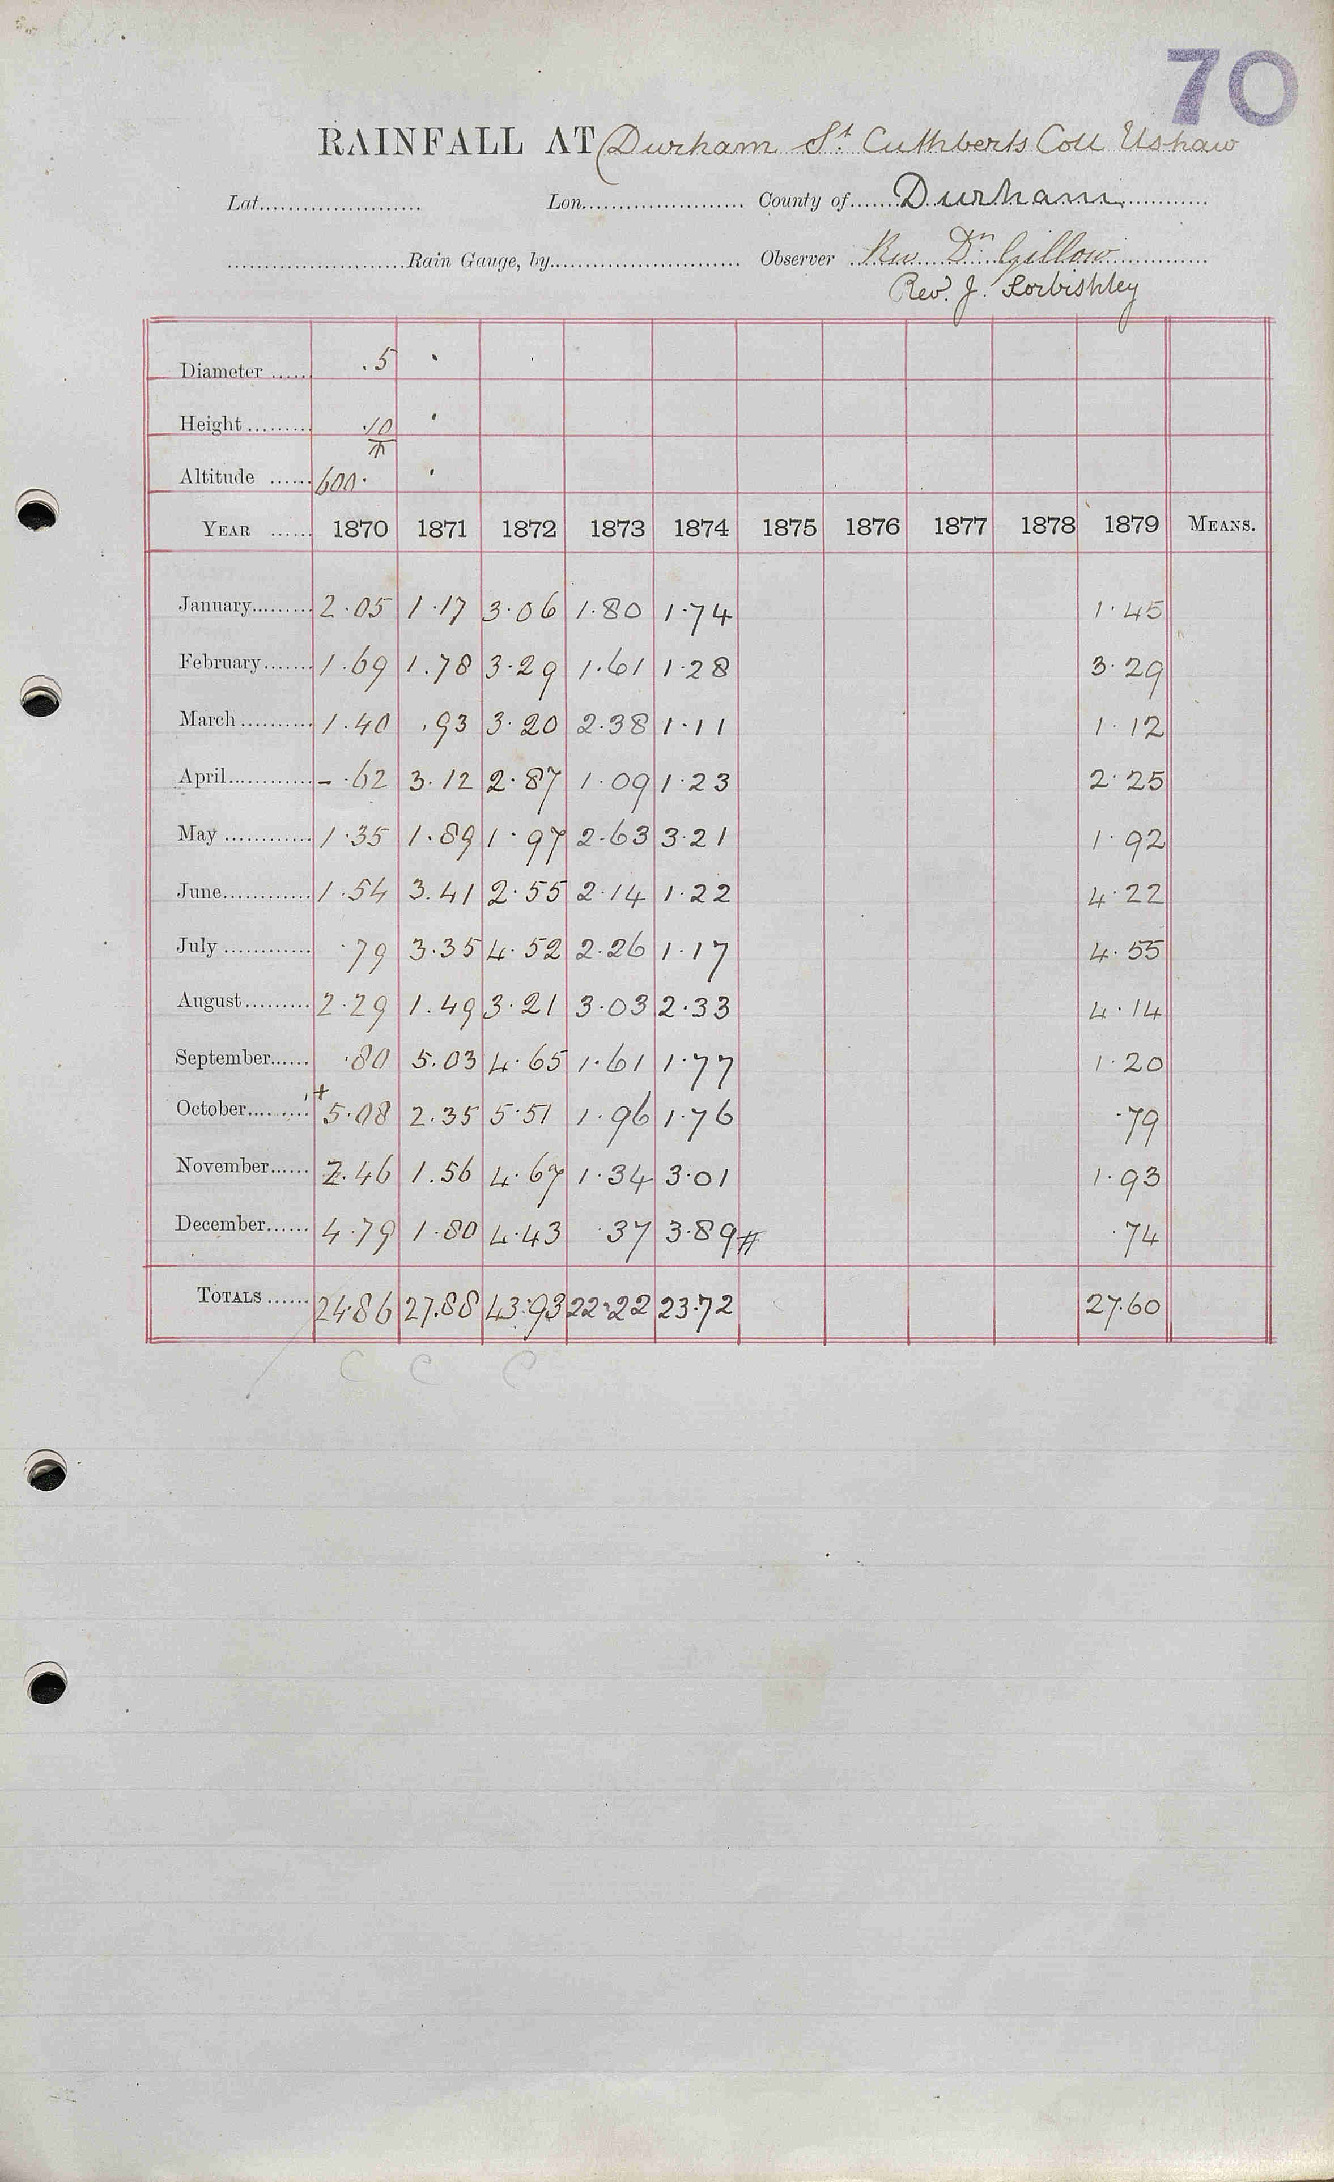 70
RAINFALL AT Durham St Cuthberts Coll Ushaw
Lat. Lon. County of Durham
Rain Gauge, by Observer Rev. Dr Gillow
Rev. J. Corbishley
Diameter .5
Height .10
Altitude 600.
YEAR 1870 1871 1872 1873 1874 1875 1876 1877 1878 1879 MEANS.
January 2.05 1.17 3.06 1.80 1.74 1.45
February 1.69 1.78 3.29 1.61 1.28 3.29
March 1.40 .93 3.20 2.38 1.11 1.12
April - .62 3.12 2.87 1.09 1.23 2.25
May 1.35 1.89 1.97 2.63 3.21 1.92
June 1.54 3.41 2.55 2.14 1.22 4.22
July .79 3.35 4.52 2.26 1.17 4.55
August 2.29 1.49 3.21 3.03 2.33 4.14
September .80 5.03 4.65 1.61 1.77 1.20
October + 5.08 2.35 5.51 1.96 1.76 .79
November 2.46 1.56 4.67 1.34 3.01 1.93
December 4.79 1.80 4.43 .37 3.89 # .74
TOTALS 24.86 27.88 43.93 22.22 23.72 27.60
C C C